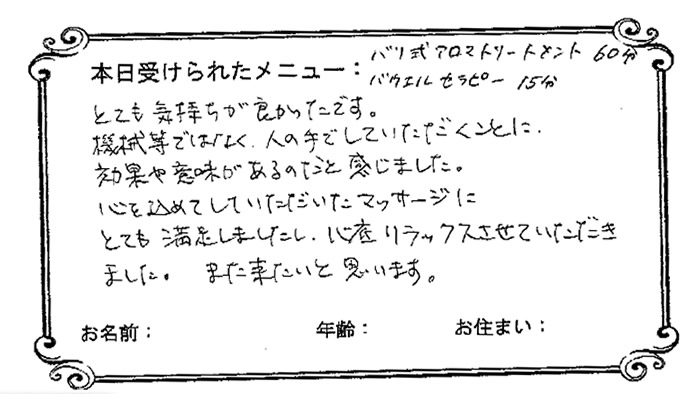 本日受けられたメニュー：バリ式アロマトリートメント 60分
バウエルセラピー 15分
とても気持ちが良かったです。
機械等ではなく、人の手でしていただくことに、
効果や意味があるのだと感じました。
心を込めてしていただいたマッサージに
とても満足しましたし、心底リラックスさせていただき
ました。 また来たいと思います。
お名前： 年齢： お住まい：